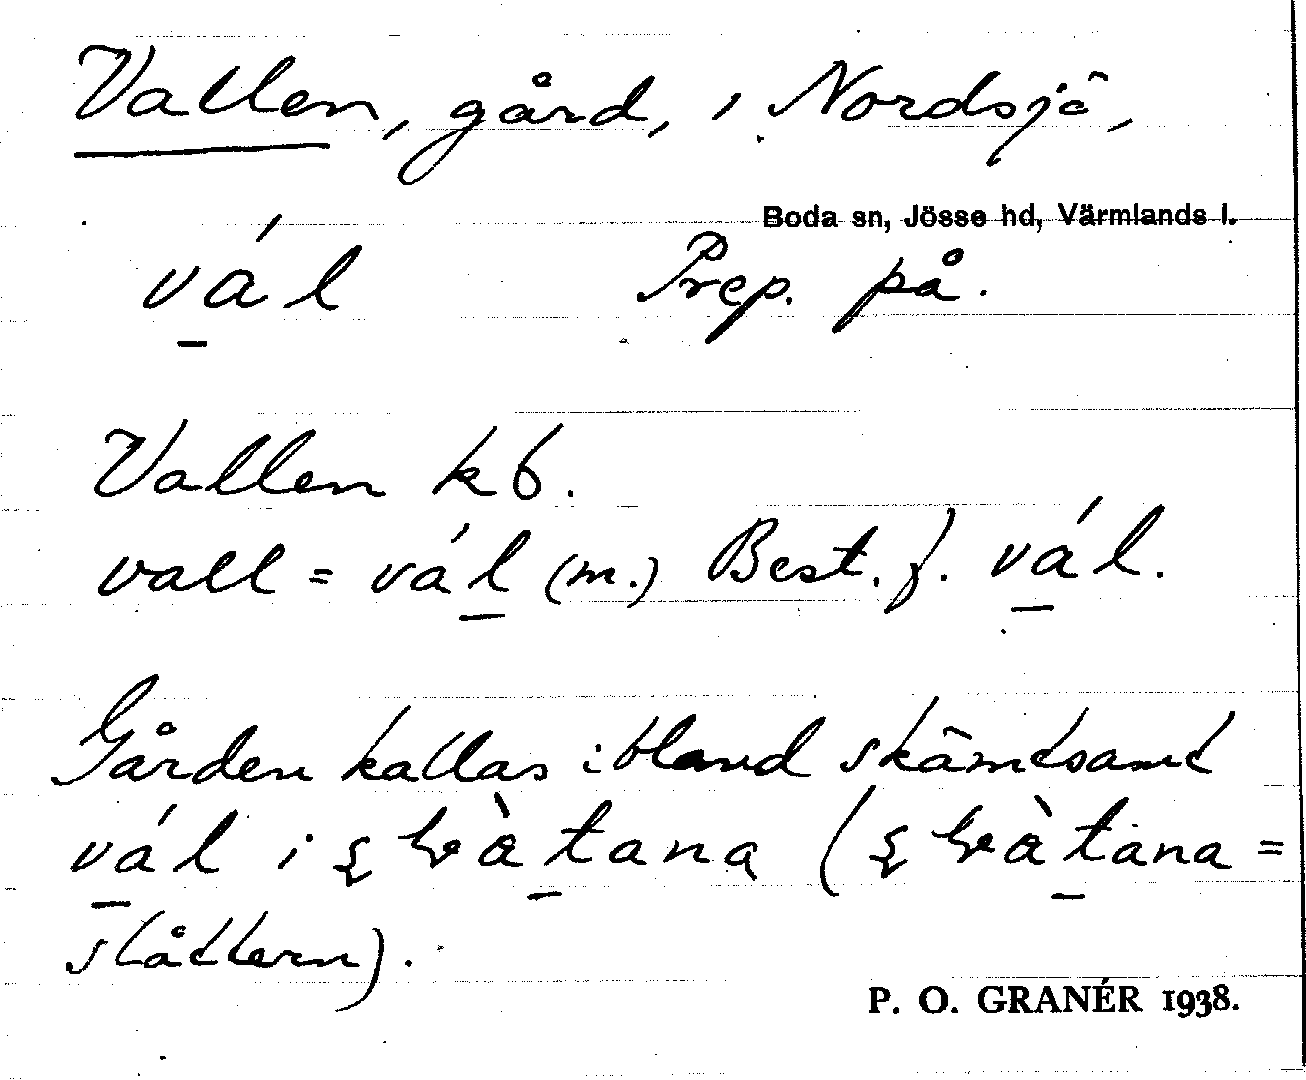 Vallen, gård, i Nordsjö,
Boda sn, Jösse hd, Värmlands l.
vá̠l Prep. på.
Vallen kb.
vall = vál̠ (m.) Best. f. vá̠l.
Gården kallas ibland skämtsamt
vá̠l i
slåttern).
P. O. GRANÉR 1938.